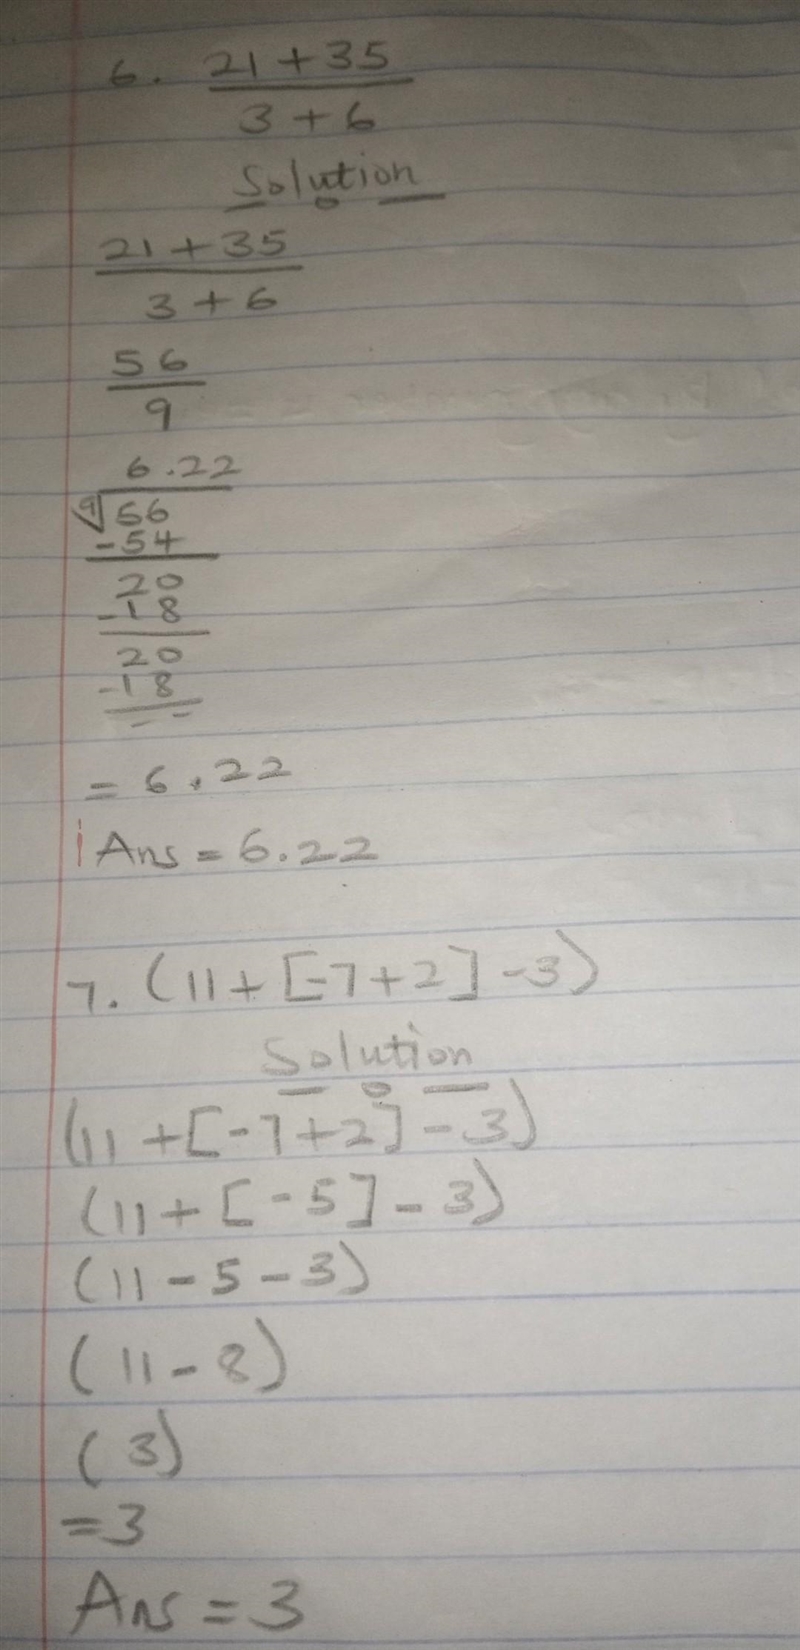 6. 21 + 35
3 + 6
Solution
21 + 35
3 + 6
56
9
6.22
9 56
- 54
20
- 18
20
- 18
- -
= 6.22
Ans = 6.22
7. (11 + [-7 + 2] - 3)
Solution
(11 + [-7 + 2] - 3)
(11 + [-5] - 3)
(11 - 5 - 3)
(11 - 8)
(3)
= 3
Ans = 3